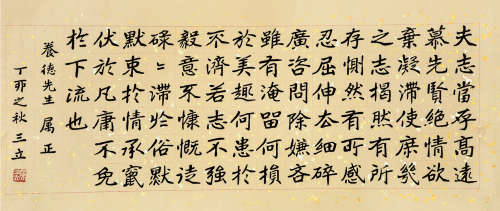 夫志當存高遠
慕先賢絕情欲
棄凝滯使庶幾
之志揭然有所
存惻然有所感
忍屈伸去細碎
廣咨問除嫌吝
雖有淹留何損
於美趣何患於
不濟若志不強
毅意不慷慨徒
碌〻滯扵俗默
默束扵情承竄
伏於凡庸不免
扵下流也
養德先生 属正
丁卯之秋 三立